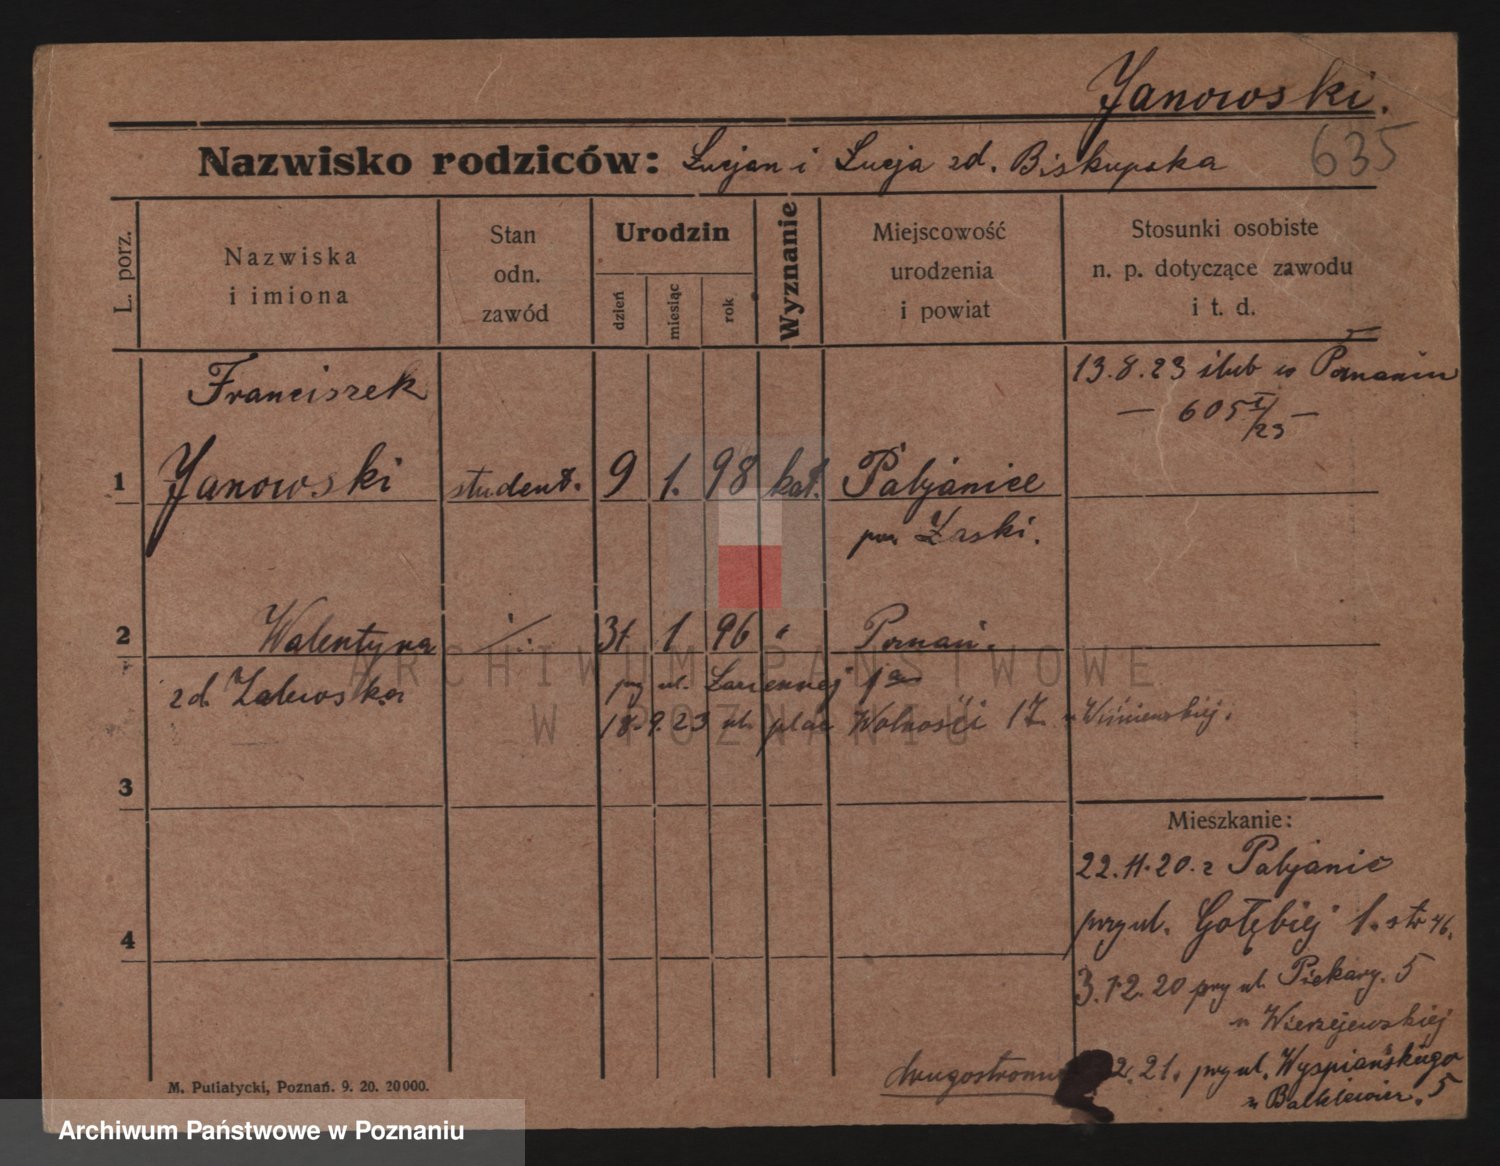 Janowski.
635
Nazwisko rodziców: Lucjan i Łucja zd. Biskupska
L. porz.
Nazwiska i imiona
Stan odn. zawód
Urodzin
dzień
miesiąc
rok
Wyznanie
Miejscowość urodzenia i powiat
Stosunki osobiste n. p. dotyczące zawodu i t. d.
Franciszek
13.8.23 ślub w Poznaniu
— 605 I/23 —
1 Janowski student. 9 1. 98 kat. Pabjanice
pow. Łaski.
2 Walentyna 31 1. 96 " Poznań.
zd. Zalewska
przy ul.
18.9.23 ul. plac Wolności 17 u Wiśniewskiej.
3
Mieszkanie:
22.11.20. z Pabjanic
przy ul. Gołębiej 1. str 46.
4
3.12.20 przy ul. Piekary. 5
u Wierzejewskiej
drugostronnie
2.21. przy ul. Wyspiańskiego
5
M. Putiatycki, Poznań. 9. 20. 20000.
ARCHIWUM PAŃSTWOWE
W POZNANIU
Archiwum Państwowe w Poznaniu